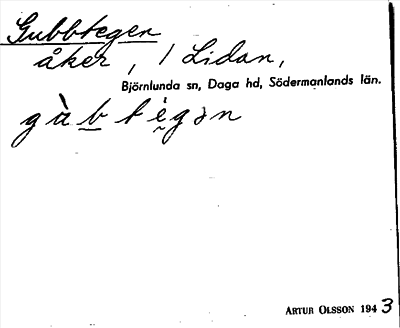 Gubbtegen
åker, / Lidan,
Björnlunda sn, Daga hd, Södermanlands län.
gàbtégən
ARTUR OLSSON 1943